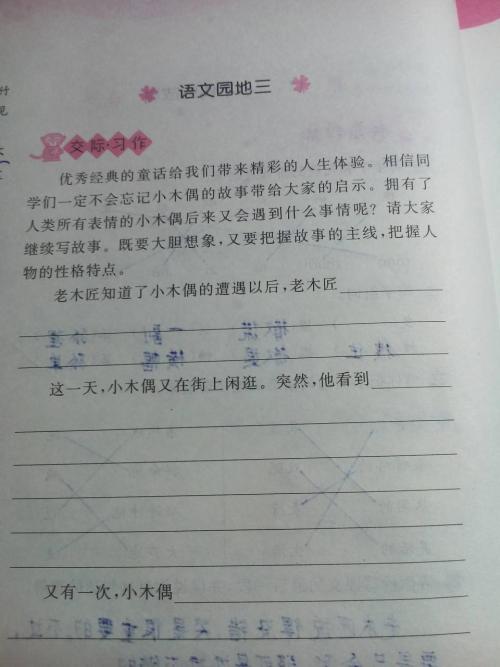 语文园地三
交际·习作
优秀经典的童话给我们带来精彩的人生体验。相信同
学们一定不会忘记小木偶的故事带给大家的启示。拥有了
人类所有表情的小木偶后来又会遇到什么事情呢？请大家
继续写故事。既要大胆想象，又要把握故事的主线，把握人
物的性格特点。
老木匠知道了小木偶的遭遇以后，老木匠
这一天，小木偶又在街上闲逛。突然，他看到
又有一次，小木偶